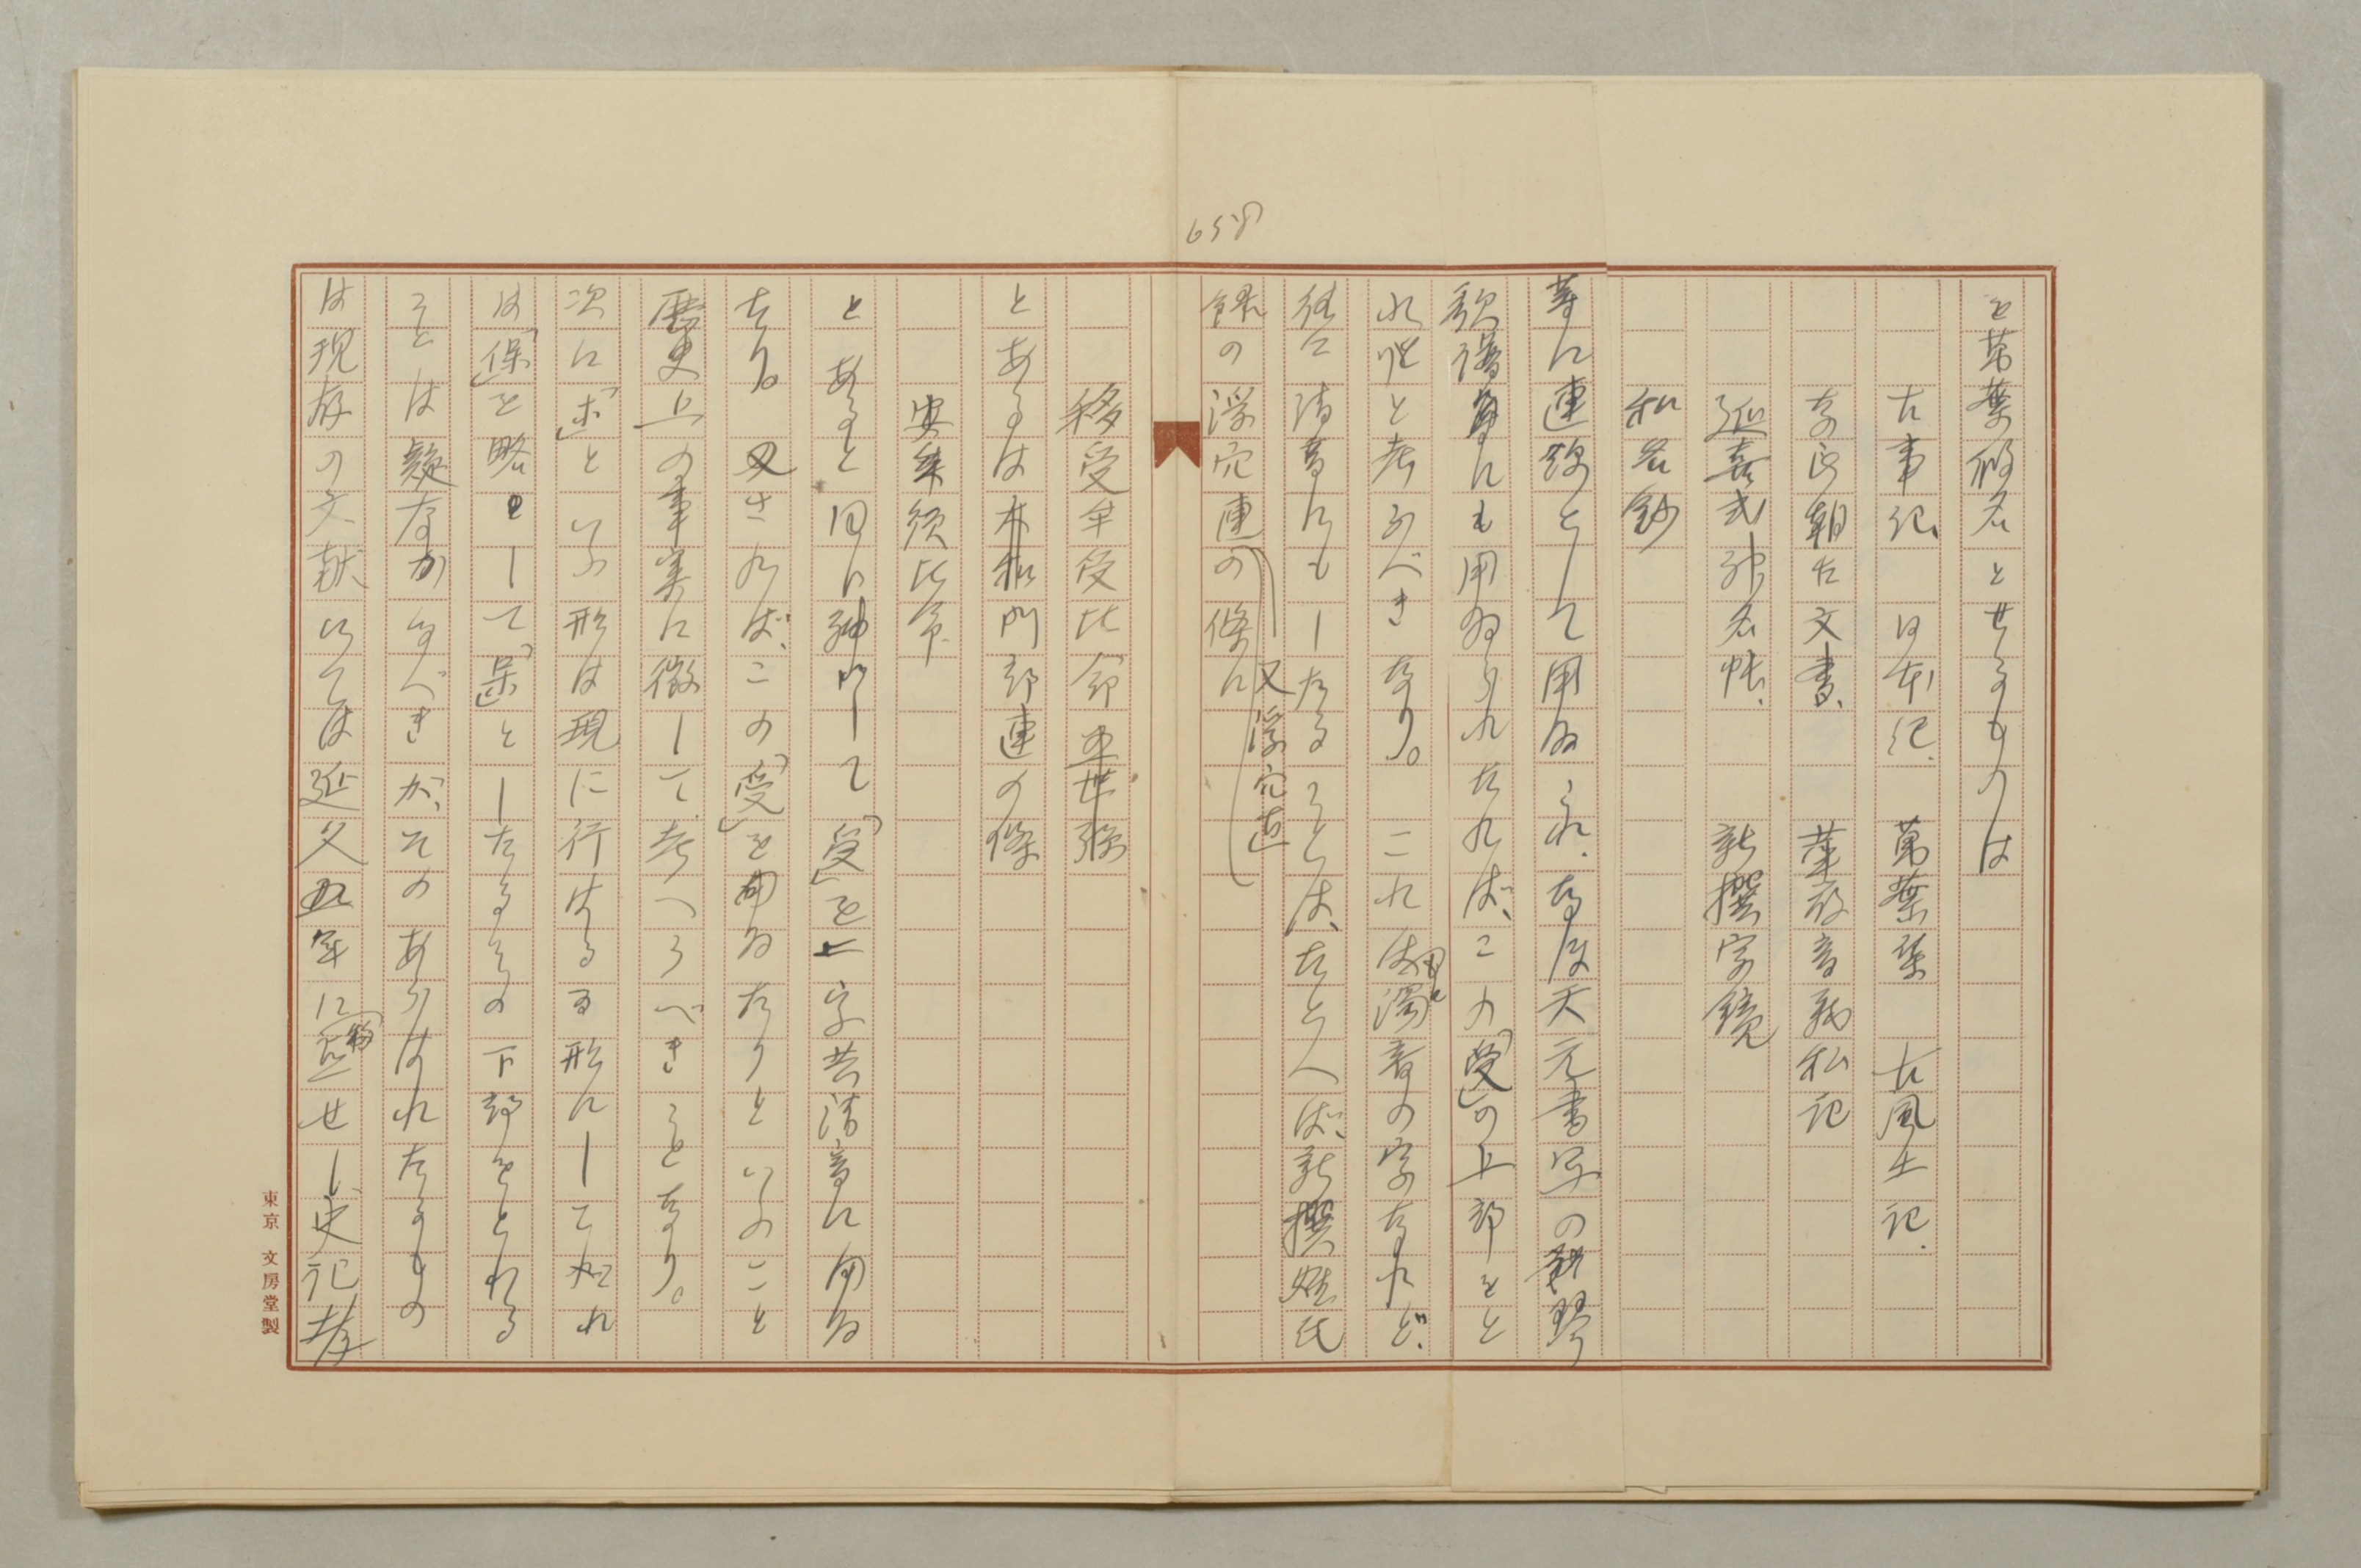 658
を萬葉假名とせるものは
古事記、日本紀、萬葉集 古風土記、
奈良朝古文書、華厳音義私記
延喜式神名帳、新撰字鏡
和名鈔
等に連綿として用ゐられ、なほ天元書写の琴
歌譜等にも用ゐられたれば、この「受」の上部をと
れりと考ふべきなり。これは濁音の字なれど、
往々清音にもしたることは、たとへば、新撰姓氏
録の浮穴連の條に
又浮穴直
移受牟受比命五世孫
とあるは本和門部連の條
安牟須比命
とあると同じ神にして「受」を二字共清音に用ゐ
たり。又されば、この「受」を用ゐたりといふこと
歴史上の事実に徴して考へうべきことなり。
次に「ホ」といふ形は現に行はるる形にしてこれ
は「保」を略して「呆」としたるその下部をとれる
ことは疑なかるべきが、そのあらはれたるもの
は現存の文献にては延久五年に
せし史記孝
東京 文房堂製